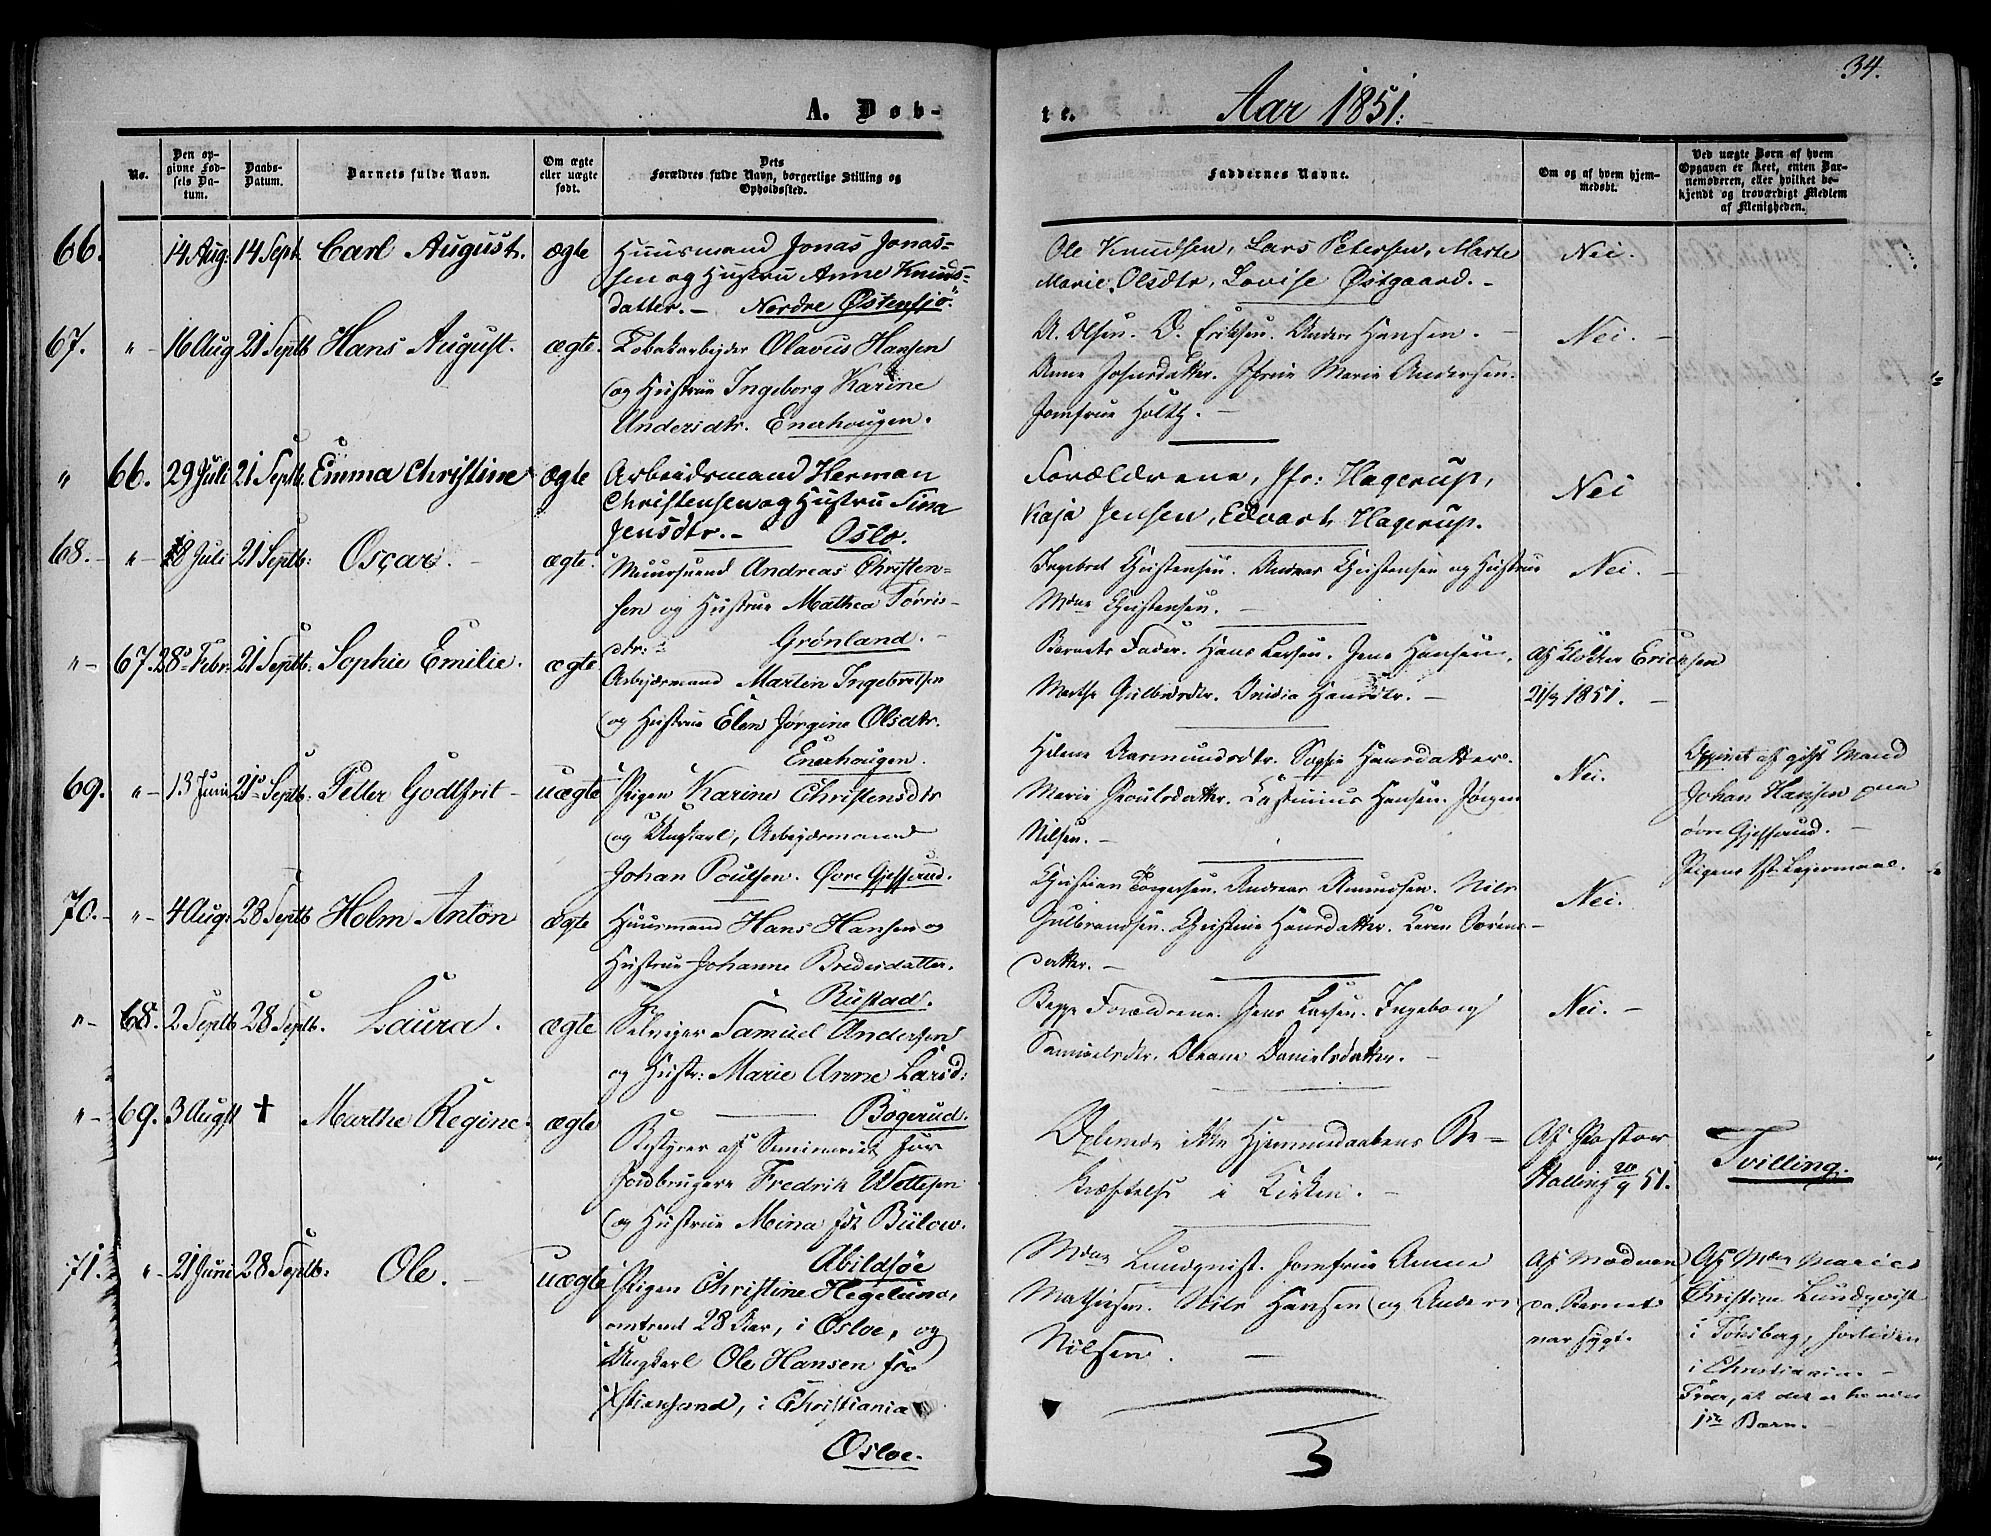 34.
A. Døb-
te. Aar 1851.
No.
Den op-
givne Fød-
sels Da-
tum.
Daabs-
Datum.
Barnets fulde Navn.
Om ægte
eller uægte
født.
Dets
Forældres fulde Navn, borgerlige Stilling og
Opholdssted.
Faddernes Navne.
Om og af hvem hjem-
medøbt.
Ved uægte Børn af hvem
Opgaven er skeet, enten Bar-
nemoderen, eller hvilket be-
kjendt og troværdigt Medlem
af Menigheden.
66. 14 Aug: 14 Sept. Carl August. ægte
Huusmand Jonas Jonas-
sen og Hustru Anne Knuds-
datter. - Nordre Østensjø.
Ole Knudsen, Lars Petersen, Marte
Marie Olsdtr, Lovise Østgaard. -
Nei.
67. " 16 Aug 21 Septb Hans August. ægte.
Tobakarbejder Olavus Hansen
og Hustrue Ingeborg Karine
Andersdtr. Enerhougen.
A. Olsen. O. Eriksen. Anders Hansen. -
Anne Johnsdatter. Jfrue Marie Andersen.
Jomfrue Holth. -
Nei. -
" 66. 29 Juli 21 Septb. Emma Christine ægte
Arbeidsmand Herman
Christensen og Hustru Sina
Jensdtr. - Oslo.
Forældrene, Jfr: Hagerup,
Kaja Jensen, Edvart Hagerup.
Nei
68. " 18 Juli 21 Septb: Oscar. - ægte.
Muursvend Andreas Christen-
sen og Hustrue Mathea Tørris-
dtr. - Grønland. -
Ingebret Christensen. Andreas Christensen og Hustrue
Mdme Christensen. -
Nei. -
" 67. 28 Febr. 21 Septb. Sophie Emilie. ægte
Arbejdsmand Martin Ingebretsen
og Hustrue Elen Jørgine Olsdtr.
Enerhougen.
Barnets Fader. Hans Larsen. Jens Hansen.
Marthe Gulbrdsdtr. Hansdtr. -
Af Klokker Ericksen
21/9 1851. -
69. " 13 Juni 21 Septb: Petter Godtfrit - uægte
Pigen Karine Christensdtr
og Ungkarl, Arbejdsmand
Johan Poulsen. Øvre Gjesserud.
Helene Aasmundsdtr. Sophie Hansdatter.
Marie Poulsdatter. Hansen. Jørgen
Nilsen. -
Nei.
Oppivet af gift Mand
Johan Hansen paa
øvre Gjesserud. -
Pigens 1st Leiermaal.
70. " 4 Aug: 28 Septb Holm Anton ægte
Huusmand Hans Hansen og
Hustrue Johanne Bredesdatter.
Rustad.
Christian Torgersen. Andreas Amundsen. Nils
Gulbrandsen. Christine Hansdatter. Karen Sørens-
datter. -
Nei.
" 68. 2 Septb 28 Septb. Laura. ægte
Selveier Samuel Andersen
og Hustr: Marie Anne Larsd:
Bøgerud.
Begge Forældrene. Jens Larsen. Ingeborg
Samuelsdtr. Oleane Danielsdatter. -
Nei. -
" 69. 3 Augst † Marthe Regine. ægte
Bestyrer af Seminariet for
Jordbrugere Fredrik Wettesen
og Hustrue Mina født Bülow.
Abildsøe
Oplevede ikke Hjemmedaabens Be-
kræftelse i Kirken. -
Af Pastor
Halling 20/9 51.
Tvilling.
71. " 21 Juni 28 Septb: Ole. - uægte
Pigen Christine Hegelund,
omtrent 28 Aar, i Osloe, og
Ungkarl Ole Hansen fra
Xstiansand, i Christiania
Osloe.
Mdme Lundqvist. Jomfrue Anne
Mathisen. Nils Hansen og Anders
Nilsen. -
Af Mødren,
da Barnet
var sygt.
Af Mdm Marie
Christine Lundqvist
i Tønsberg, forleden
i Christiania. -
Troer, at det er hendes
1ste Barn. -
3